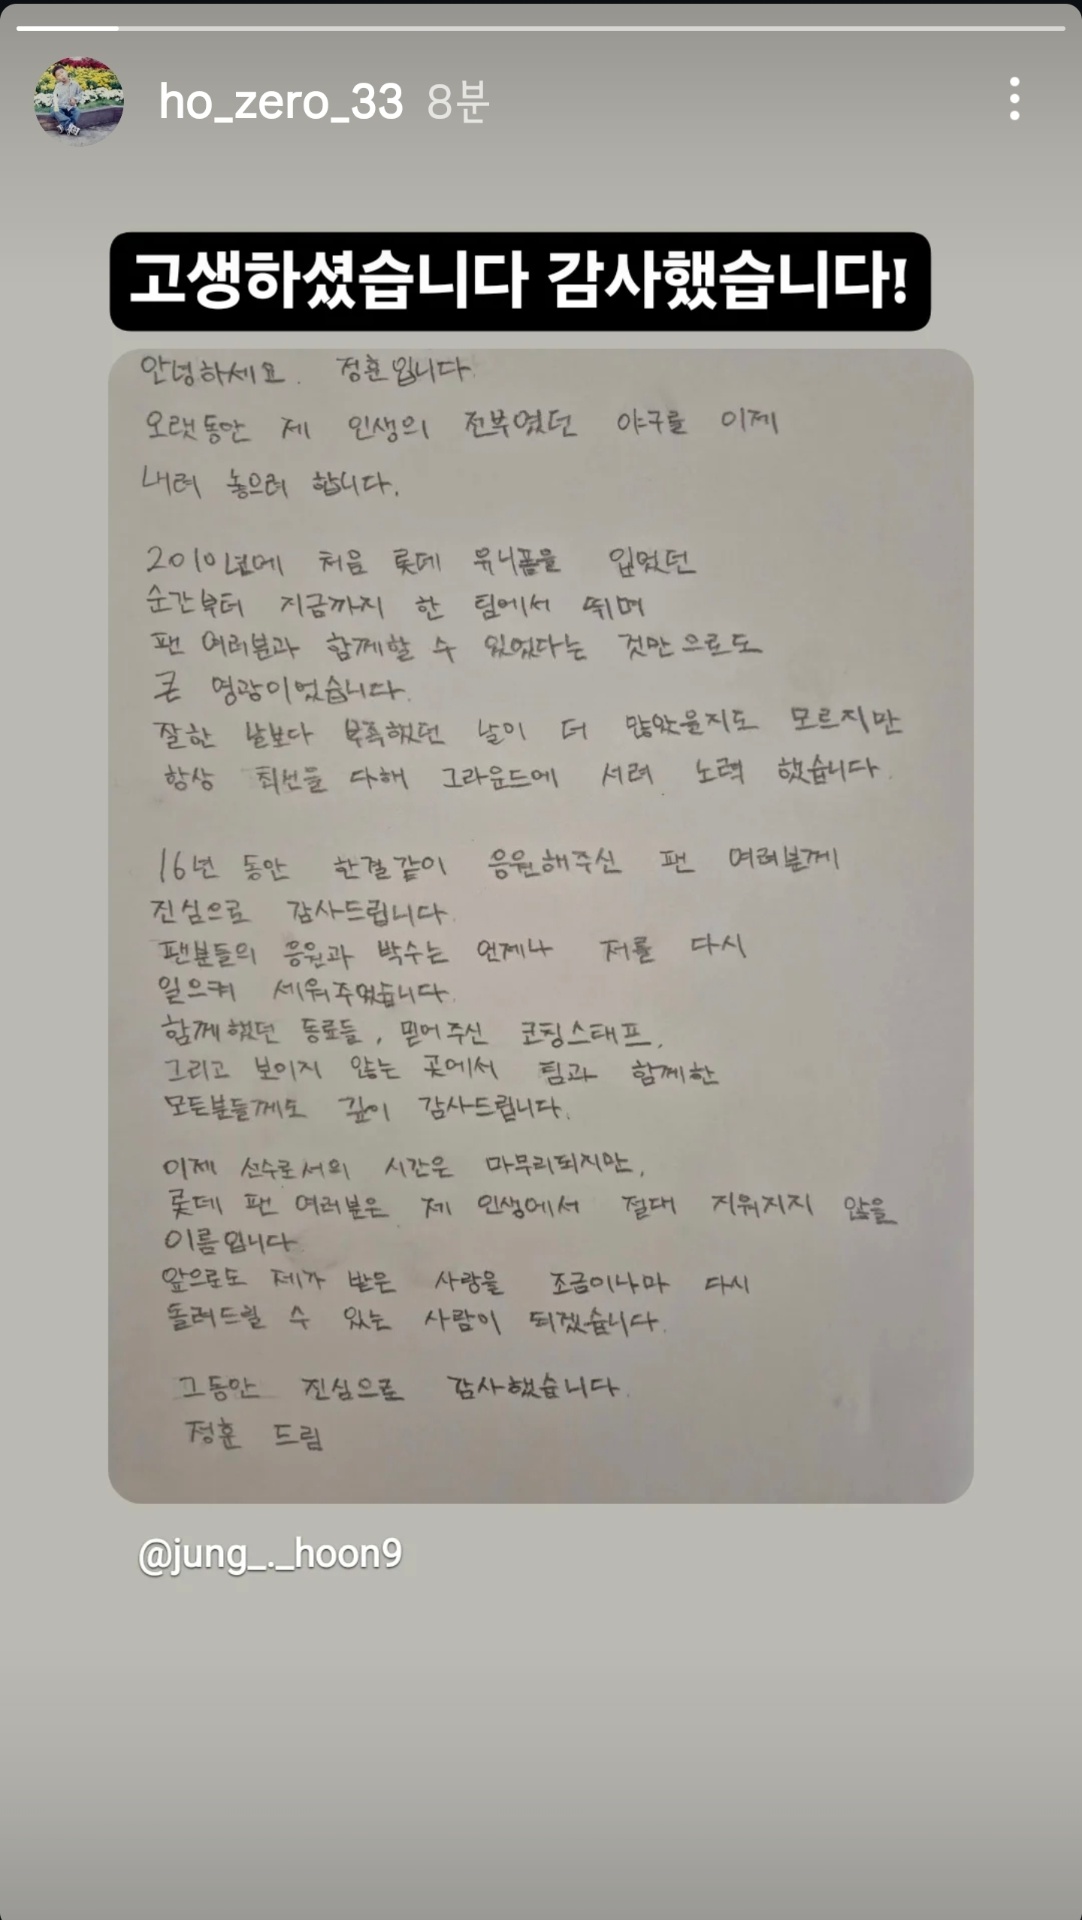 ho_zero_33 8분
고생하셨습니다 감사했습니다!
안녕하세요. 정훈입니다.
오랫동안 제 인생의 전부였던 야구를 이제
내려 놓으려 합니다.
2010년에 처음 롯데 유니폼을 입었던
순간부터 지금까지 한 팀에서 뛰며
팬 여러분과 함께할 수 있었다는 것만으로도
큰 영광이었습니다.
잘한 날보다 부족했던 날이 더 많았을지도 모르지만
항상 최선을 다해 그라운드에 서려 노력 했습니다.
16년 동안 한결같이 응원해주신 팬 여러분께
진심으로 감사드립니다.
팬분들의 응원과 박수는 언제나 저를 다시
일으켜 세워주었습니다.
함께했던 동료들, 믿어주신 코칭스태프,
그리고 보이지 않는 곳에서 팀과 함께한
모든분들께도 깊이 감사드립니다.
이제 선수로서의 시간은 마무리되지만,
롯데 팬 여러분은 제 인생에서 절대 지워지지 않을
이름입니다.
앞으로도 제가 받은 사랑을 조금이나마 다시
돌려드릴 수 있는 사람이 되겠습니다.
그동안 진심으로 감사했습니다.
정훈 드림
@jung_._hoon9